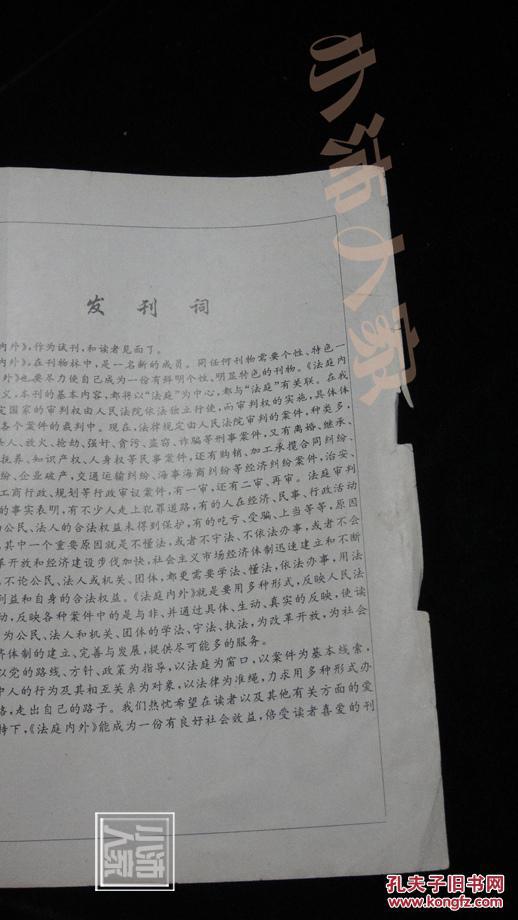 小沛人家
发刊词
内外》,作为试刊,和读者见面了。
内外》,在刊物林中,是一名新的成员。同任何刊物需要个性、特色一
外》也要尽力使自己成为一份有鲜明个性,明显特色的刊物。《法庭内
义,本刊的基本内容,都将以“法庭”为中心,都与“法庭”有关联。在我
定国家的审判权由人民法院依法独立行使,而审判权的实施,具体体
各个案件的裁判中。现在,法律规定由人民法院审判的案件,种类多,
杀人、放火、抢劫、强奸、贪污、盗窃、诈骗等刑事案件,又有离婚、继承、
抚养、知识产权、人身权等民事案件,还有购销、加工承揽合同纠纷、
纷、企业破产,交通运输纠纷、海事海商纠纷等经济纠纷案件,治安、
工商行政、规划等行政审议案件,有一审,还有二审、再审。法庭审判
的事实表明,有不少人走上犯罪道路,有的人在经济、民事、行政活动
公民、法人的合法权益未得到保护,有的吃亏、受骗、上当等等,原因
其中一个重要原因就是不懂法,或者不守法、不依法办事,或者不会
革开放和经济建设步伐加快,社会主义市场经济体制迅速建立和不断
不论公民、法人或机关、团体,都更需要学法、懂法,依法办事,用法
利益和自身的合法权益。《法庭内外》就是要用多种形式,反映人民法
动,反映各种案件中的是与非、并通过具体、生动、真实的反映,使读
为公民、法人和机关、团体的学法、守法、执法,为改革开放,为社会
济体制的建立、完善与发展,提供尽可能多的服务。
以党的路线、方针、政策为指导,以法庭为窗口,以案件为基本线索,
中人的行为及其相互关系为对象,以法律为准绳,力求用多种形式办
路,走出自己的路子。我们热忱希望在读者以及其他有关方面的爱
持下,《法庭内外》能成为一份有良好社会效益,倍受读者喜爱的刊
小沛人家
孔夫子旧书网
www.kongfz.com